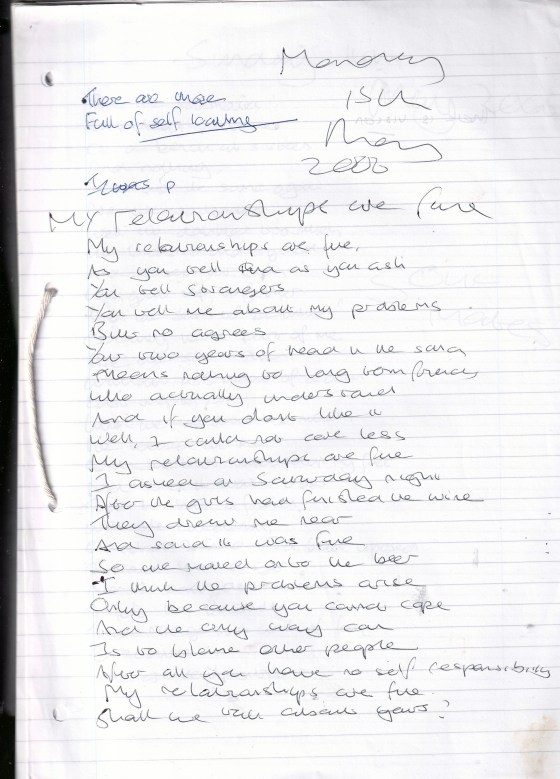 Monday
15th
May
2000
There are those
Full of self loathing
My relationships are fine
My relationships are fine,
As you tell and as you ask
You tell strangers
You tell me about my problems
But no agrees
Your two years of head in the sand
Means nothing to long term friends
Who actually understand
And if you dont like it
Well, I could not care less
My relationships are fine
I asked on Saturday night
After the girls had finished the wine
They drew me near
And said it was fine
So we moved onto the beer
I think the problems arise
Only because you cannot cope
And the only way can
Is to blame other people
After all you have no self responsibility
My relationships are fine
Shall we talk about yours?